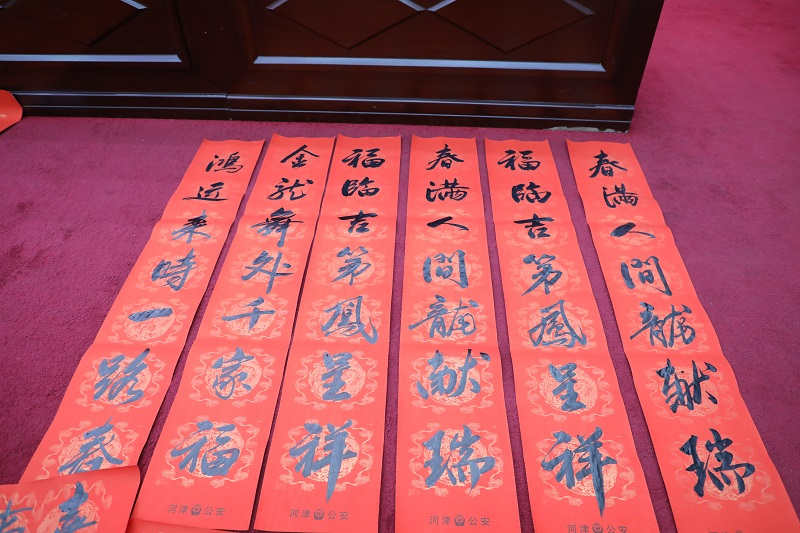 春滿人間龍献瑞
福临吉第鳳呈祥
春滿人間龍献瑞
福临吉第鳳呈祥
金龙舞处千家福
鴻运来時一路春
河津公安
河津公安
河津公安
河津公安